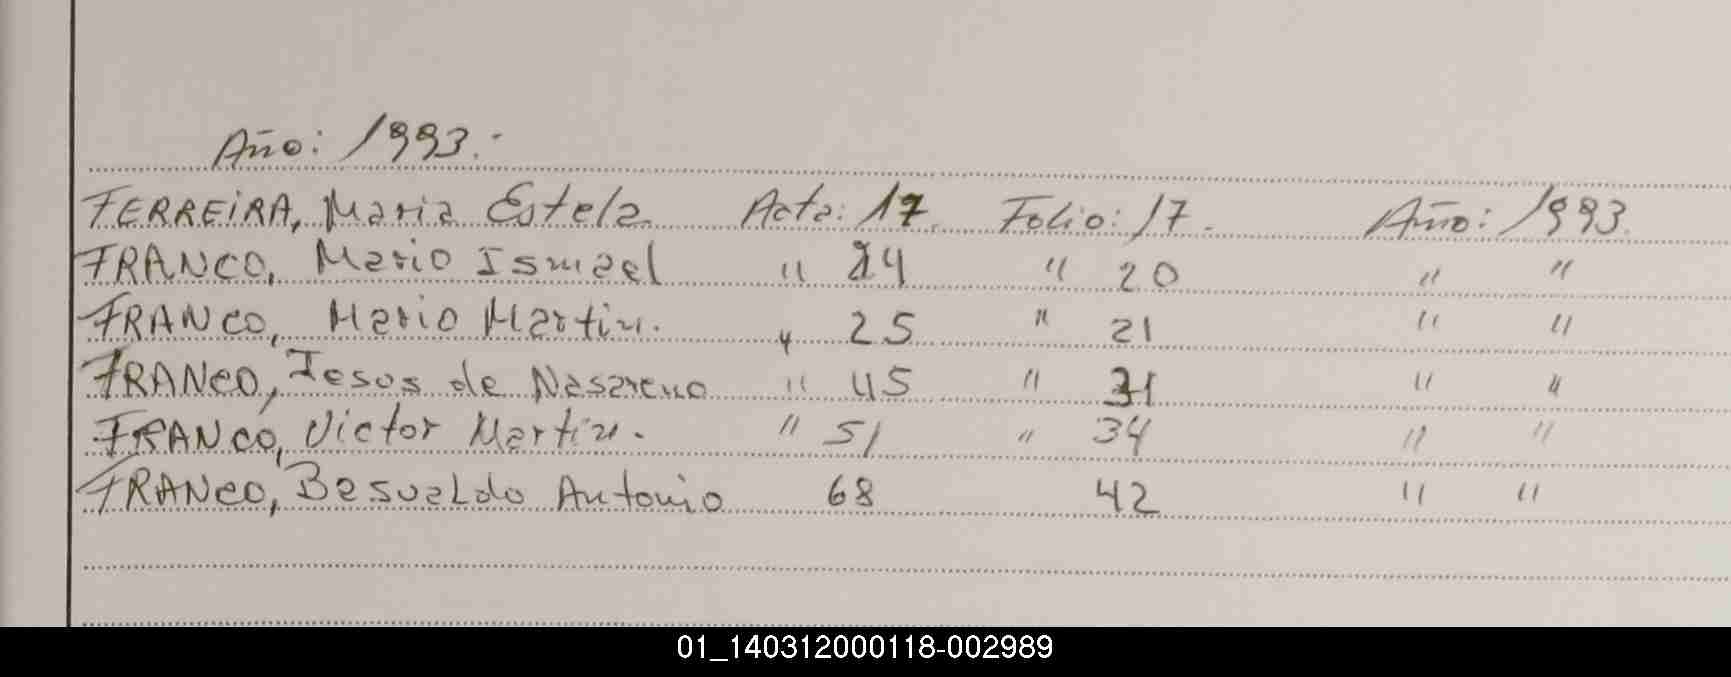 Año: 1993.-
FERREIRA, Maria Estela. Acta: 17. Folio: 17. Año: 1993.
FRANCO, Mario Ismael " 24 " 20 " "
FRANCO, Mario Martin. " 25 " 21 " "
FRANCO, Jesos de Nasareno " 45 " 31 " "
FRANCO, Victor Martin. " 51 " 34 " "
FRANCO, Besualdo Antonio 68 42 " "
01_140312000118-002989